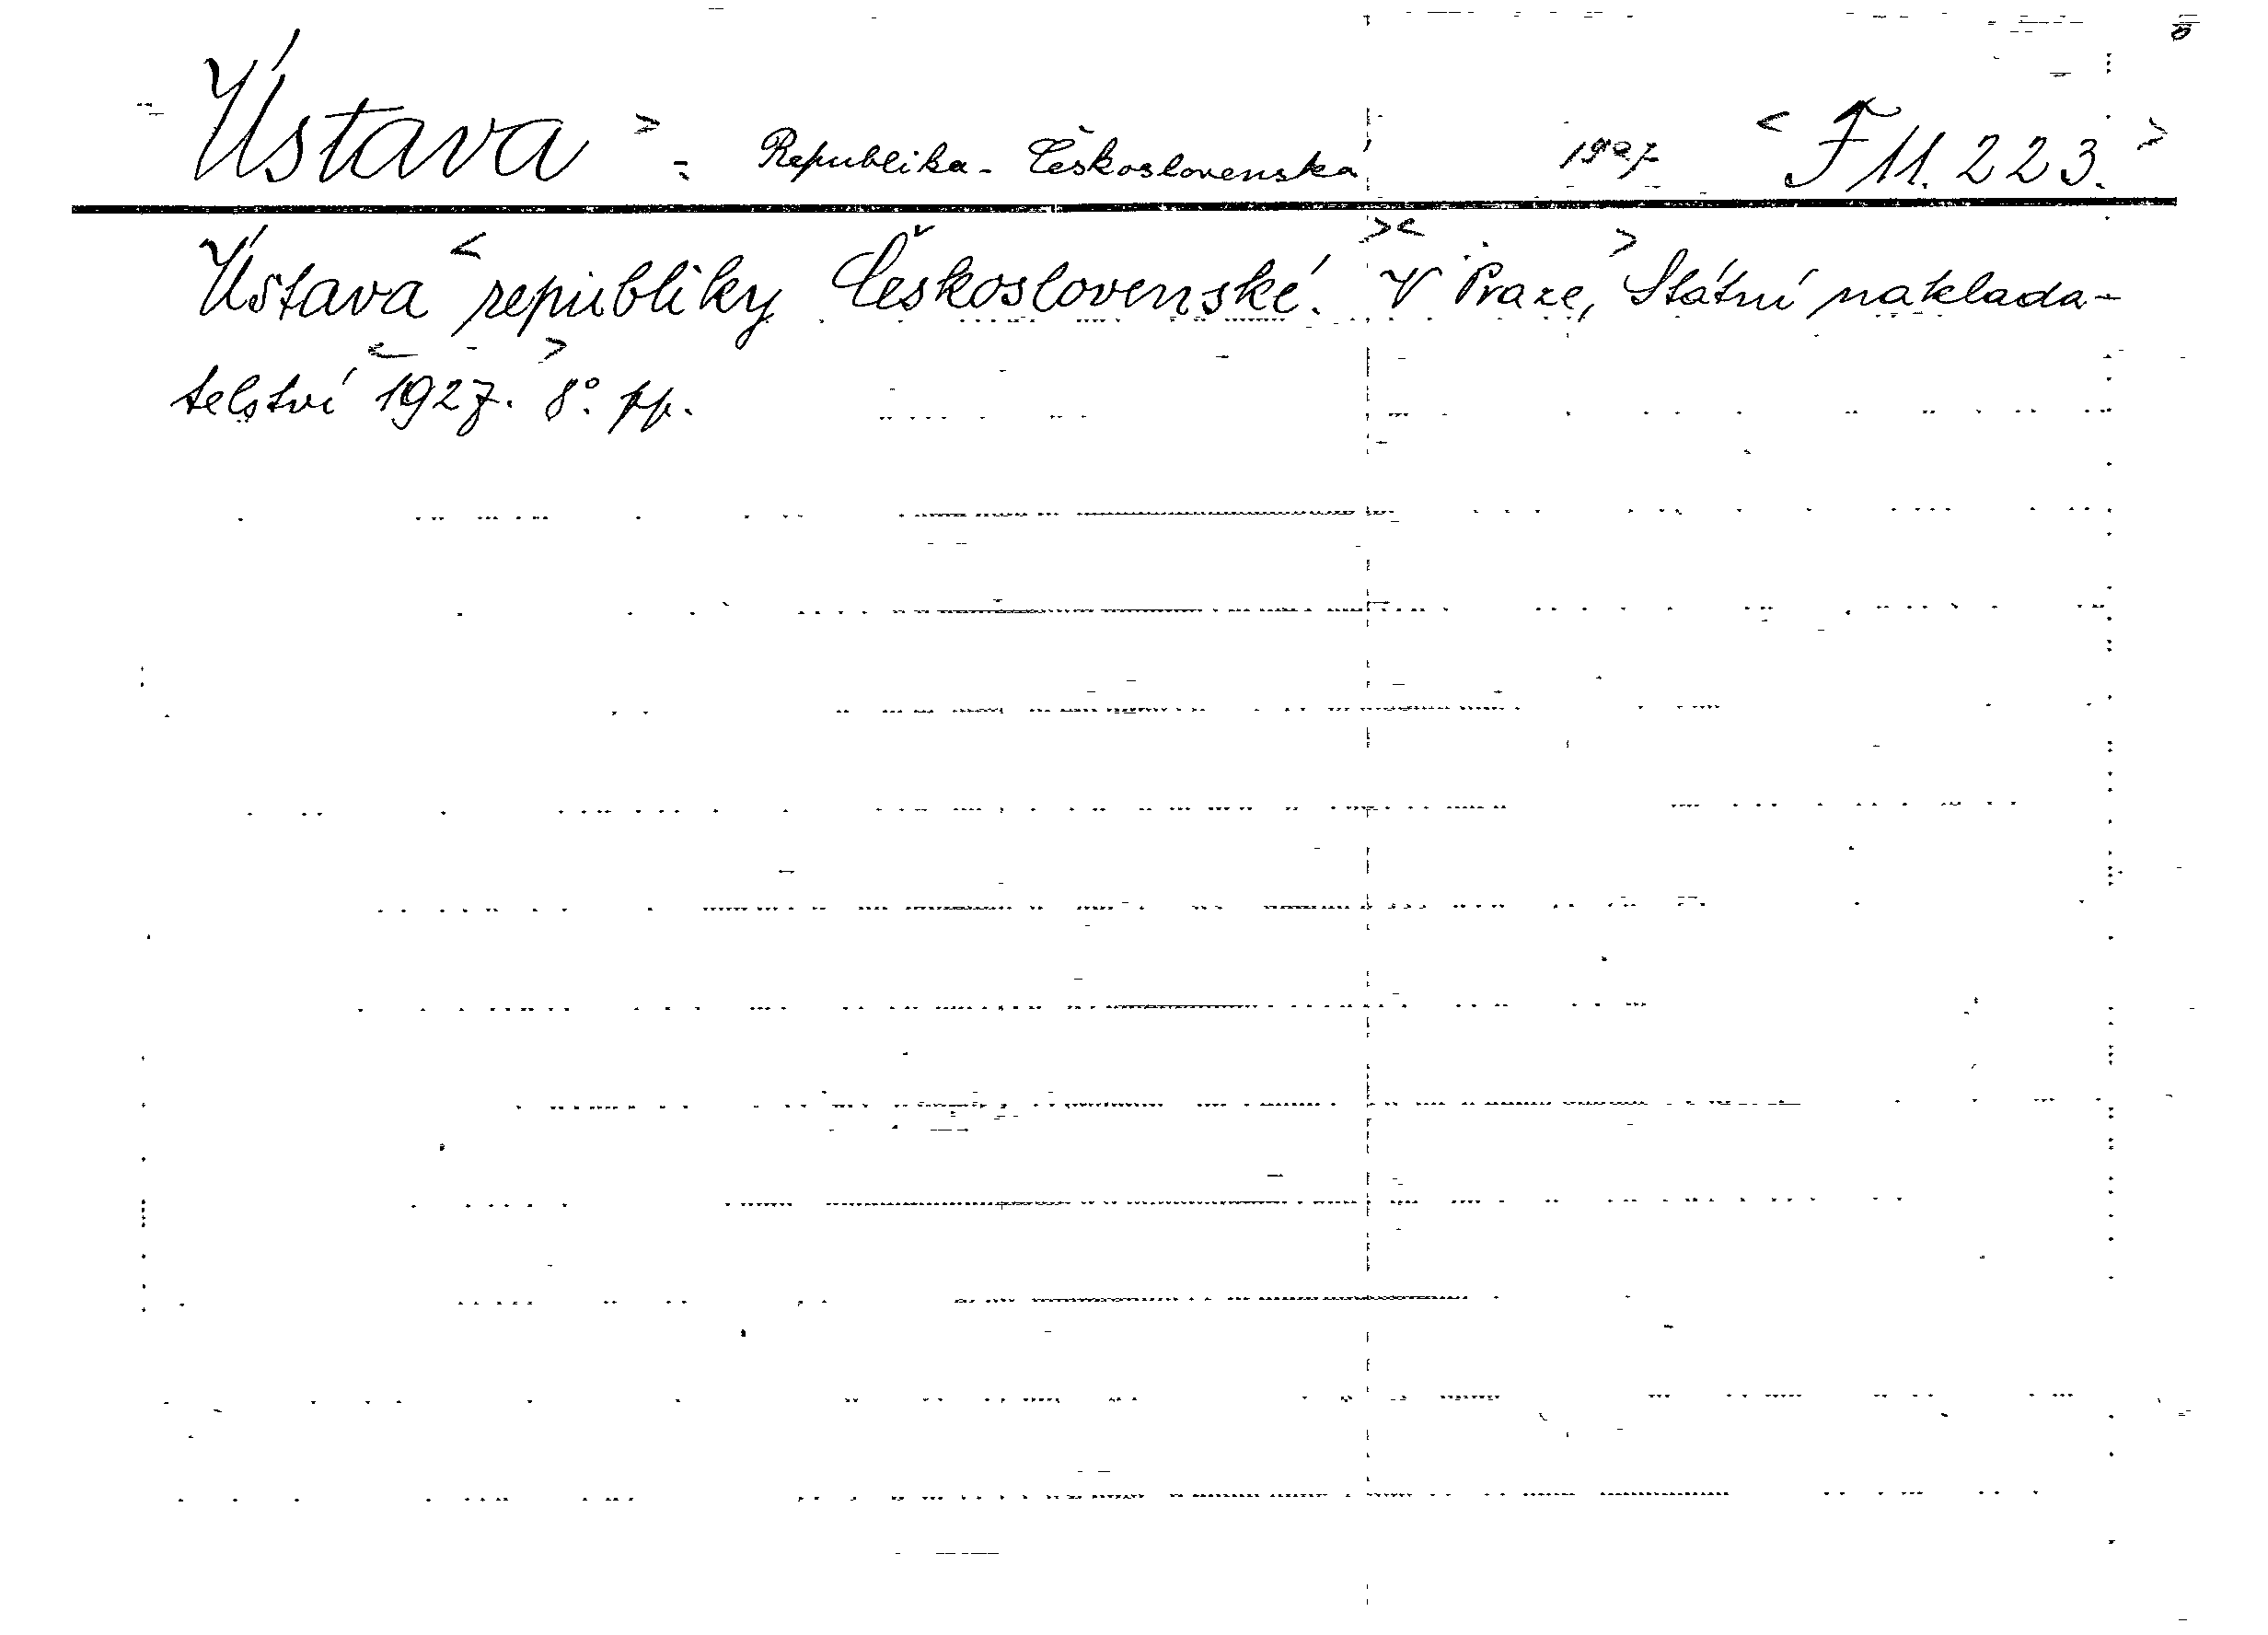 Ústava > = Republika - Československá 1927 < F 11.223. >
Ústava < republiky Československé. >< V Praze, > Státní naklada-
telství < 1927. > 8°. pp.